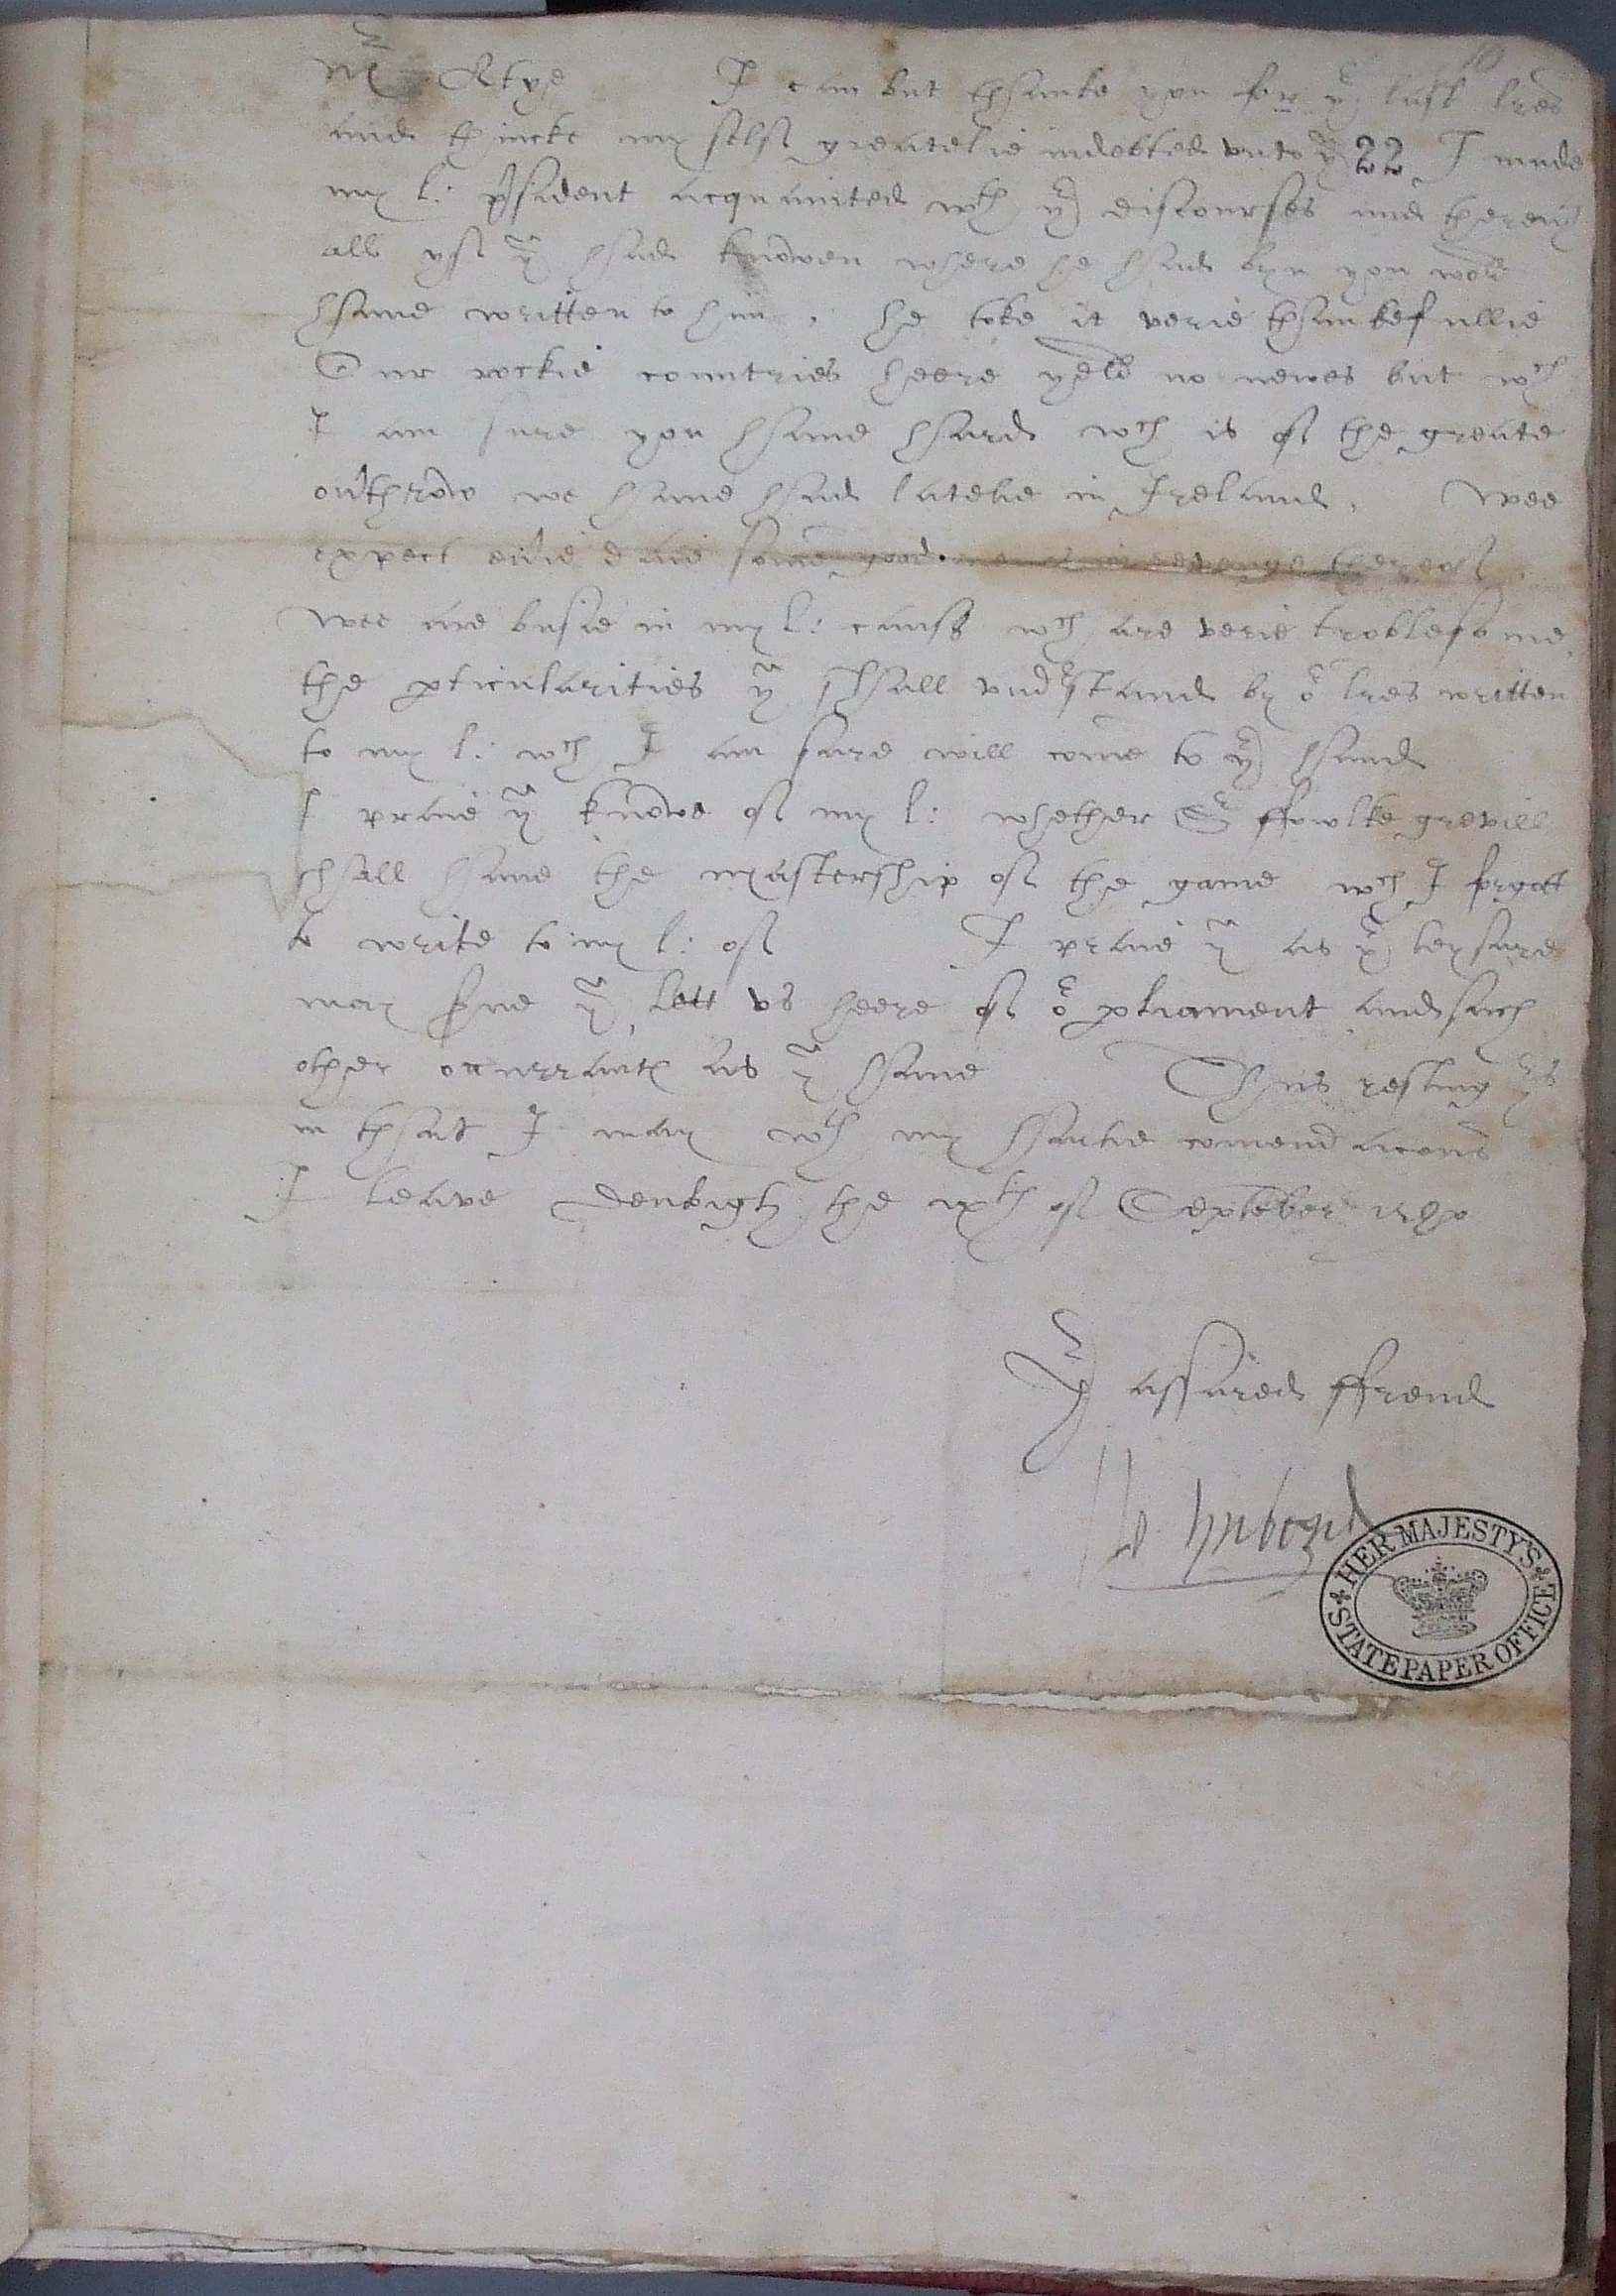 Mr Atye I can but thanke you for yor last lres
and thincke my self greatelie indebted vnto yo 22 I made
my l: psident acquainted wth yor discourses and therewth
all yf yu had knowen where he had byn you wold
haue written to him, he toke it verie thankefullie
Our rockie countries heere yeld no newes but wch
I am sure you haue hard wch is of the greate
outhrow we haue had latelie in Ireland, Wee
expect eūie daie some good revenge thereof
Wee are busie in my l: causs wch are verie troblesome,
the pticularities yu shall vndrstand by or lres written
to my l: wch I am sure will come to yor hand
I praie yu knowe of my l: whether Sr ffowlke grevill
shall haue the mastership of the game wch I forgott
to write to my l: of I praie yu as yor leysure
may srue yu lett vs heere of or pliament and such
other occurrants as yu haue Thus resting yors
in that I may wth my hartie comendacons
I leave Denbigh the ixth of Septeber 1580
Yor assured ffrend
HER MAJESTY'S
STATE PAPER OFFICE